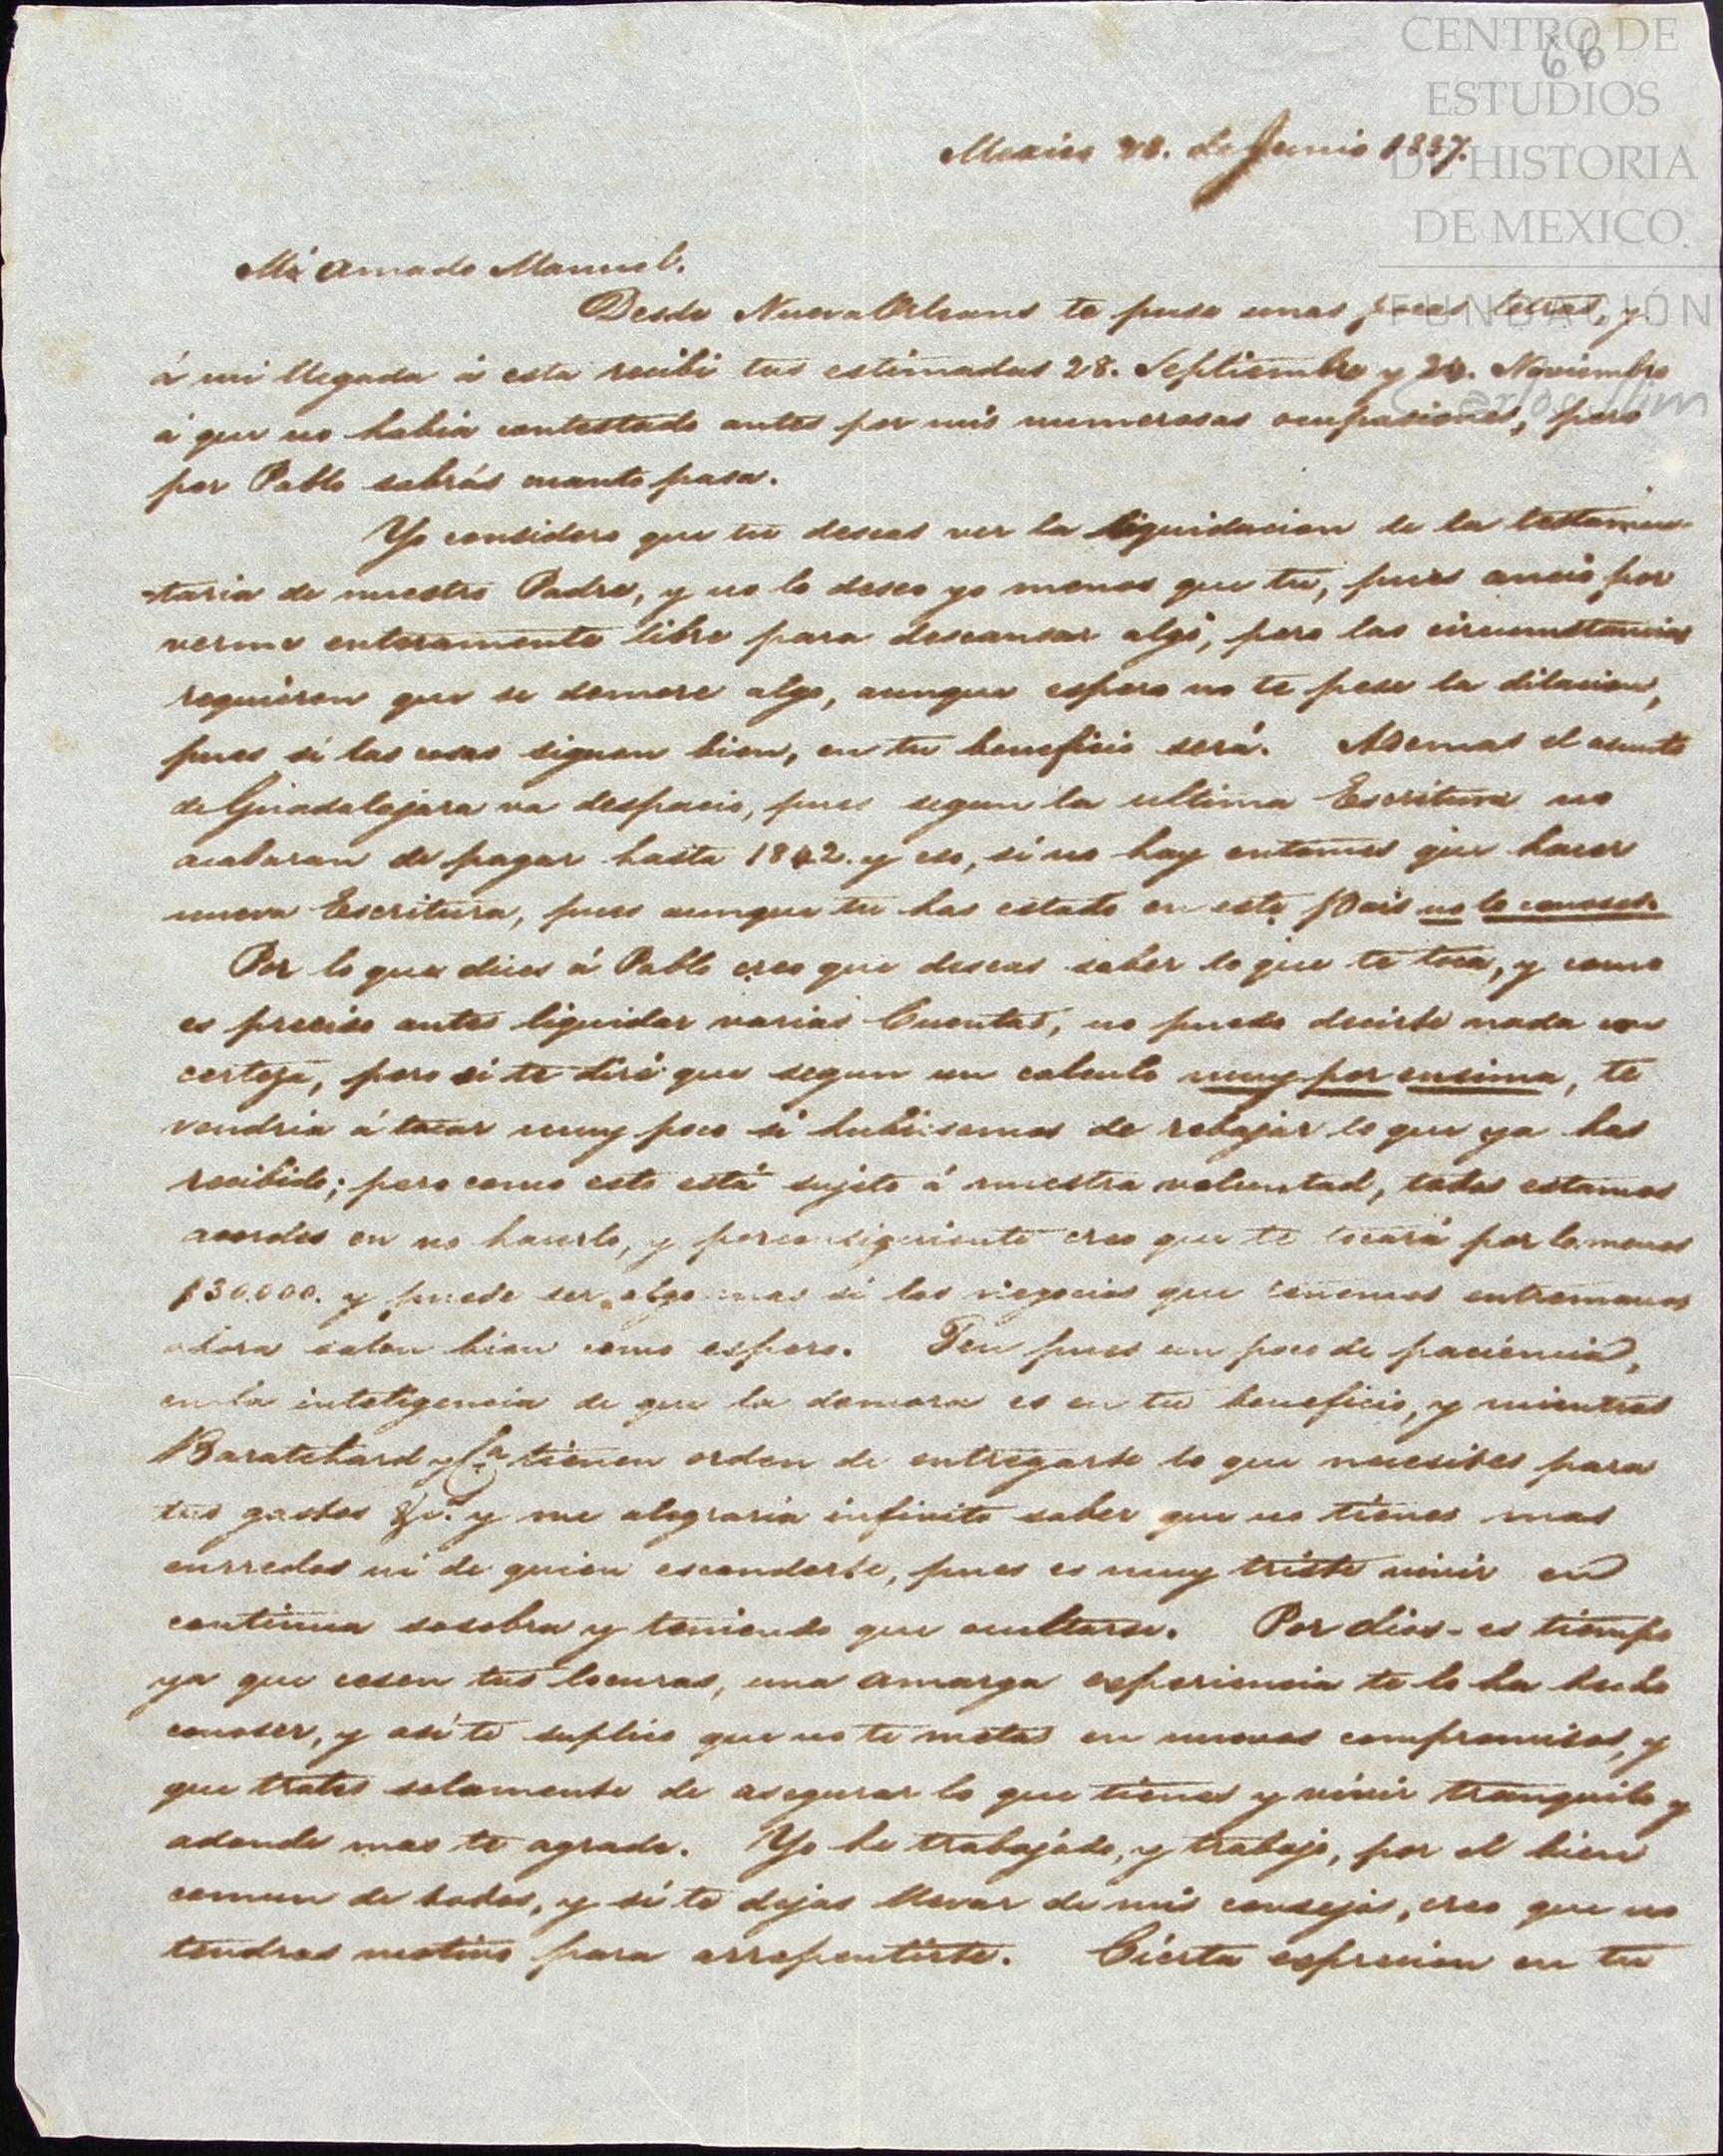 CENTRO DE
ESTUDIOS
DE HISTORIA
DE MEXICO.
FUNDACIÓN
Carlos Slim
66
Mexico 28. de Junio 1837.
Mi amado Manuel.
Desde Nueva Orleans te puse unas pocas letras, y
á mi llegada á esta recibi tus estimadas 28. Septiembre y 24. Noviembre
á que no habia contestado antes por mis numerosas ocupasiones, pero
por Pablo sabrás cuanto pasa.
Yo considero que tu deseas ver la liquidacion de la testamen-
-taria de nuestro Padre, y no lo deseo yo menos que tu, pues ancio por
verme enteramente libre para descansar algo, pero las circumstancias
requieren que se demore algo, aunque espero no te pese la dilacion,
pues si las cosas siguen bien, en tu beneficio será. Ademas el asunto
de Guadalajara va despacio, pues segun la ultima Escritura no
acabaran de pagar hasta 1842. y eso, si no hay entonces que hacer
nueva Escritura, pues aunque tu has estado en este pais no lo conoses.
Por lo que dices á Pablo creo que deseas saber lo que te toca, y como
es preciso antes liquidar varias Cuentas, no puedo decirte nada con
certeza, pero si te diré que segun un calculo muy por ensima, te
vendria á tocar muy poco si hubiesemos de rebajar lo que ya has
recibido; pero como esto está sujeto á nuestra voluntad, todos estamos
acordes en no hacerlo, y por consiguiente creo que te tocará por lo menos
$30.000. y puede ser algo mas si los negocios que tenemos entremanos
ahora salen bien como espero. Ten pues un poco de paciencia,
en la inteligencia de que la demora es en tu beneficio, y mientras
Baratchard y Ca. tienen orden de entregarte lo que necesites para
tus gastos &a. y me alegraria infinito saber que no tienes mas
enrredos ni de quien esconderte, pues es muy triste vivir en
continua sosobra y teniendo que ocultarse. Por dios - es tiempo
ya que cesen tus locuras, una amarga experiencia te lo ha hecho
conoser, y asi te suplico que no te metas en nuevos compromisos, y
que trates solamente de asegurar lo que tienes y vivir tranquilo y
adonde mas te agrade. Yo he trabajado, y trabajo, por el bien
comun de todos, y si te dejas llevar de mis consejos, creo que no
tendras motivo para arrepentirte. Cierta esprecion en tu